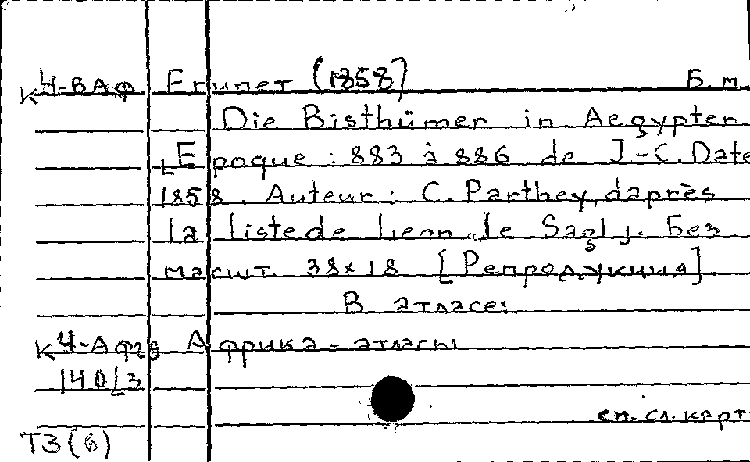 К4-ВАФ Египет (1858) Б.м.
Die Bisthümer in Aegypten
Epoque: 883 à 886 de J-C. Date
1858. Auteur: C. Parthey, daprès
la listede Leon le Sage]. Без
масшт. 38x18 [Репродукция]
В атласе:
К4-Афр Африка-атласы
140/3
см. сл. карт
Т3(6)